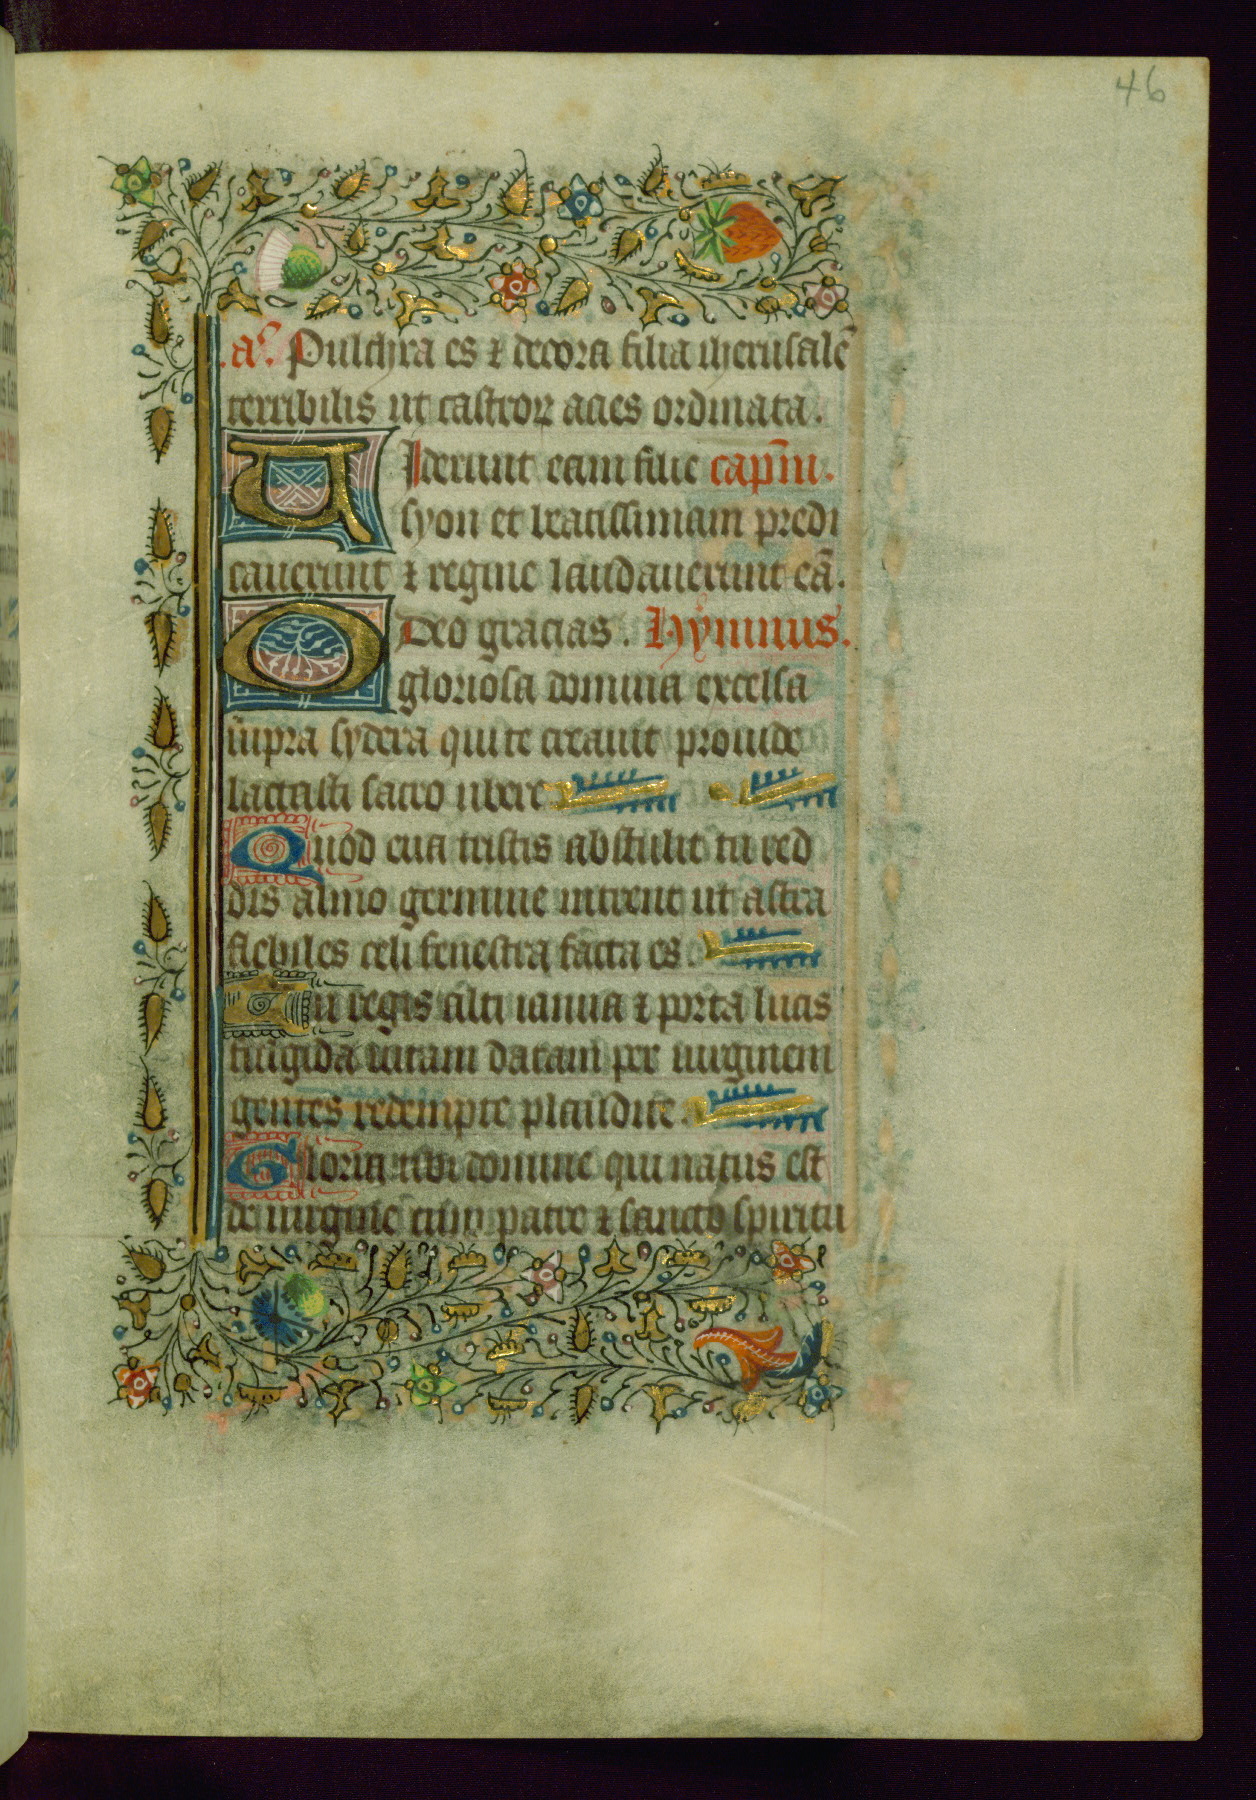 46
.aͨ. Pulchra es ⁊ decora filia iherusalē
terribilis ut castroꝝ acies ordinata.
Uiderunt eam filie capl̄m.
syon et beatissimam predi
cauerunt ⁊ regine laudauerunt eā.
Deo gracias. Hymnus.
O gloriosa domina excelsa
supra sydera qui te creauit prouide
lactasti sacro ubere
Quod eua tristis abstulit tu red
dis almo germine intrent ut astra
flebiles celi fenestra facta es
Tu regis alti ianua ⁊ porta lucis
fulgida uitam datam per uirginem
gentes redempte plaudite.
Gloria tibi domine qui natus est
de uirgine cum patre ⁊ sancto spiritu